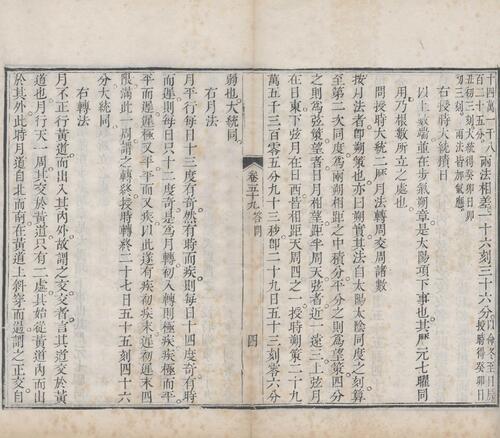 兩法相差一十六刻三十六分
丑初三刻大統得癸卯日卯
初三刻兩法皆加氣應
右授時大統積日
以上數端並在步氣朔章是太陽項下事也其厯元七曜同
用乃根數所立之處也
問授時大統二厯月法轉周交周諸數
按月法者卽朔策也亦曰朔實其法自太陽太陰同度之刻算
至第二次同度爲兩朔相距之中積分平分之則爲望策四分
之則爲弦策望者日月相望距半周天弦者近一遠三上弦月
在日東下弦月在日西皆相距天周四之一授時朔策二十九
萬五千三百零五分九十三秒卽二十九日五十三刻零六分
卷五十九 答問 四
弱也大統同
右月法
月平行每日十三度有奇然有時而疾則每日十四度奇有時
而遲則每日只十二度奇是爲月轉初入轉則極疾疾極而平
平而遲遲極又平平而又疾以此遂有疾初疾末遲初遲末四
限滿此一周謂之轉終授時轉終二十七日五十五刻四十六
分大統同
右轉法
月不正行黃道而出入其內外故謂之交交者言其道交於黃
道也月行天一周其交於黃道只有二處其始從黃道內而出
於其外此時月道自北而南在黃道上斜穿而過謂之正交自